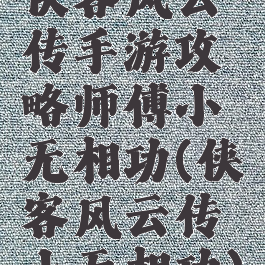 侠客风云
传手游攻
略师傅小
无相功(侠
客风云传
小无相功)